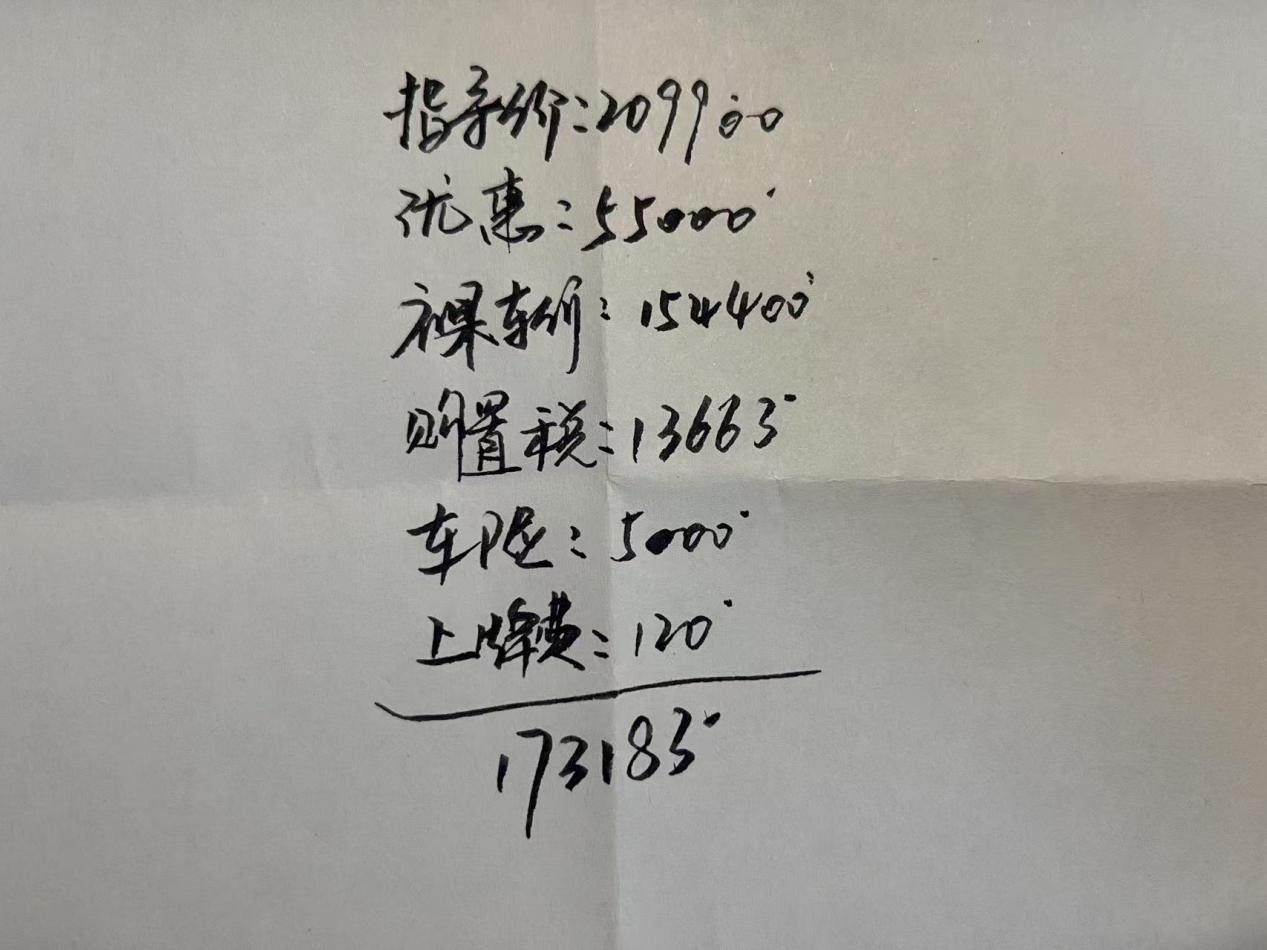 指导价:209900
优惠:55000
裸车价:154400
购置税:13663
车险:5000
上牌费:120
173183